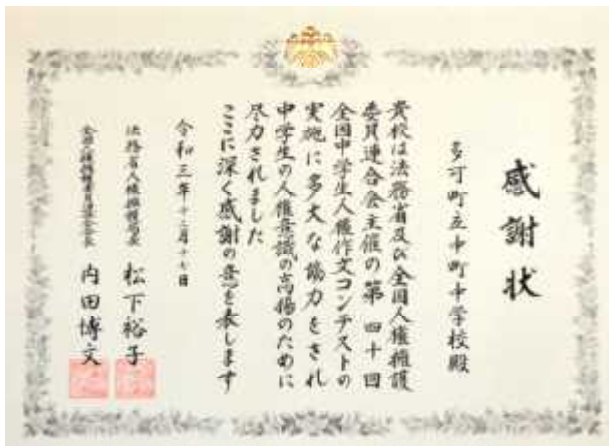 感謝状
多可町立中町中学校殿
貴校は法務省及び全国人権擁護
委員連合会主催の第四十回
全国中学生人権作文コンテストの
実施に多大な協力をされ
中学生の人権意識の高揚のために
尽力されました
ここに深く感謝の意を表します
令和三年十二月十七日
法務省人権擁護局長 松下裕子
全国人権擁護委員連合会長 内田博文